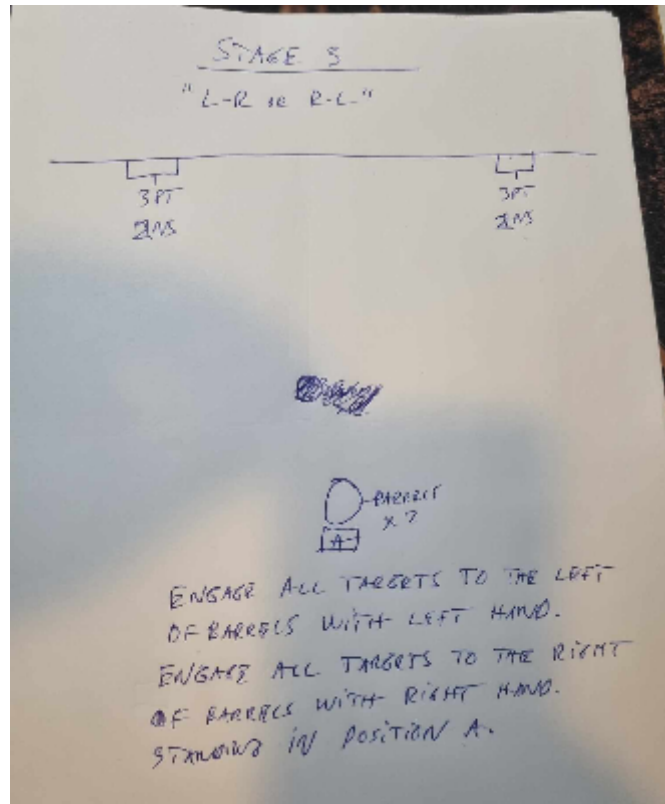 STAGE 3
"L-R or R-L"
3PT
3PT
NS
NS
BARREL
x 2
A
ENGAGE ALL TARGETS TO THE LEFT
OF BARRELS WITH LEFT HAND.
ENGAGE ALL TARGETS TO THE RIGHT
OF BARRELS WITH RIGHT HAND.
STANDING IN POSITION A.